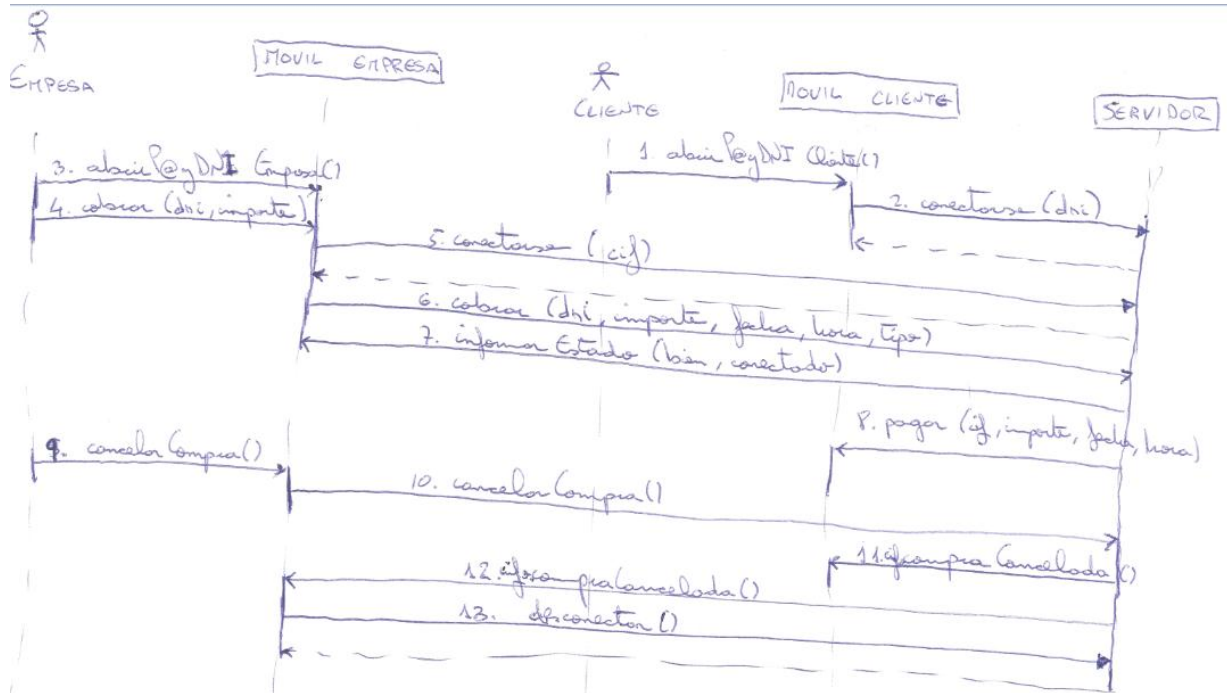 EMPESA
MOVIL EMPRESA
CLIENTE
MOVIL CLIENTE
SERVIDOR
1. abrir P@yDNI Cliente()
2. conectarse (dni)
3. abrir P@yDNI Empresa()
4. cobrar (dni, importe)
5. conectarse (cif)
6. cobrar (dni, importe, fecha, hora, tipo)
7. informar Estado (bien, conectado)
8. pagar (cif, importe, fecha, hora)
9. cancelar Compra()
10. cancelar Compra()
11. compra Cancelada ()
12. compra Cancelada ()
13. desconectar ()